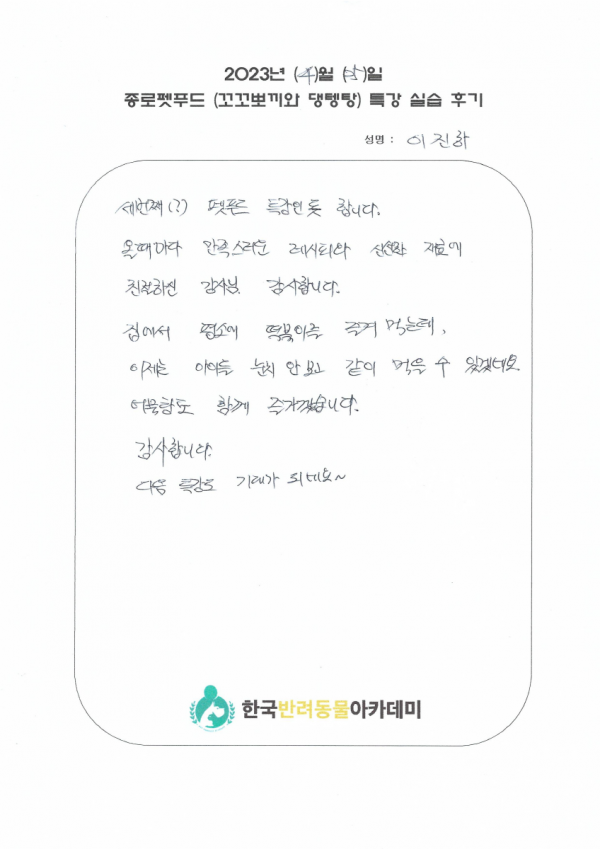 2023년 (4)월 (25)일
종로펫푸드 (꼬꼬뽀끼와 댕텡탕) 특강 실습 후기
성명 : 이진하
세번째(?) 펫푸드 특강인 듯 합니다.
올때마다 만족스러운 레시피와 신선한 재료에
친절하신 강사님 감사합니다.
집에서 평소에 떡볶이를 즐겨 먹는데,
이제는 아이들 눈치 안보고 같이 먹을 수 있겠네요.
어묵탕도 함께 즐기겠습니다.
감사합니다.
다음 특강도 기대가 되네요~
한국반려동물아카데미